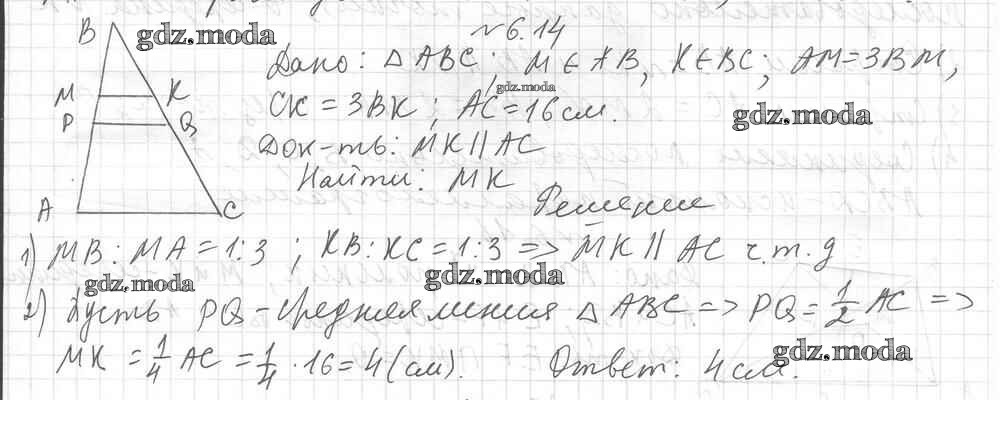 №6.14
Дано: △ABC; M∈AB, K∈BC; AM=3BM,
CK=3BK; AC=16см.
Док-ть: MK||AC
Найти: MK
Решение
1) MB:MA=1:3; KB:KC=1:3 => MK || AC ч.т.д
2) Пусть PQ-средняя линия △ABC => PQ=1/2 AC =>
MK = 1/4 AC = 1/4 · 16 = 4 (см). Ответ: 4 см.
B
M K
P Q
A C
gdz.moda
gdz.moda
gdz.moda
gdz.moda
gdz.moda
gdz.moda